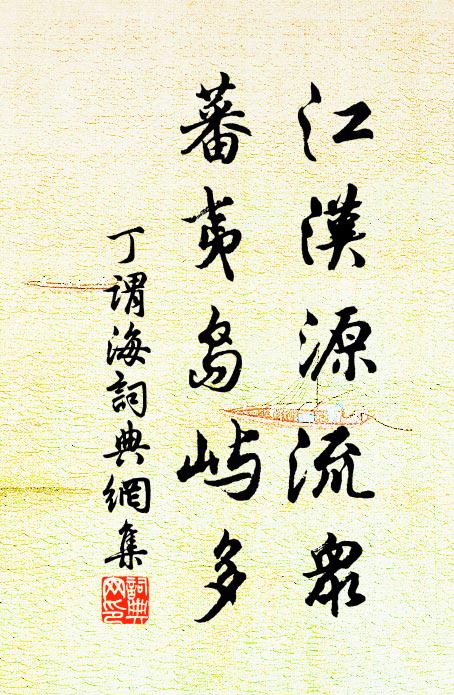 江漢源流衆
蕃夷島嶼多
丁謂海詞典網集
詞典網印